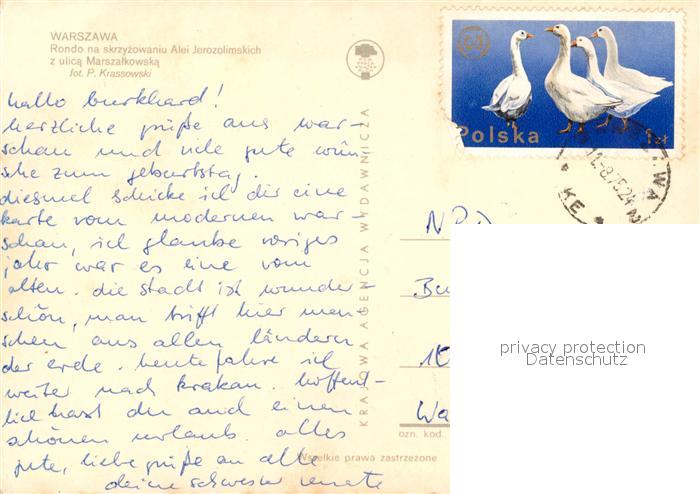 WARSZAWA
Rondo na skrzyżowaniu Alei Jerozolimskich
z ulicą Marszałkowską
fot. P. Krassowski
hallo burkhard!
herzliche grüße aus war-
schau und viele gute wün-
sche zum geburtstag.
diesmal schicke ich dir eine
karte vom modernen war-
schau, ich glaube voriges
jahr war es eine vom
alten. die stadt ist wunder-
schön, man trifft hier men-
schen aus allen ländern
der erde. heute fahre ich
weiter nach krakau. hoffent-
lich hast du auch einen
schönen urlaub. alles
gute, liebe grüße an alle
deine schwester renate
KRAJOWA AGENCJA WYDAWNICZA
Polska
1zł
NRD
Wa
ozn. kod.
Wszelkie prawa zastrzeżone
privacy protection
Datenschutz